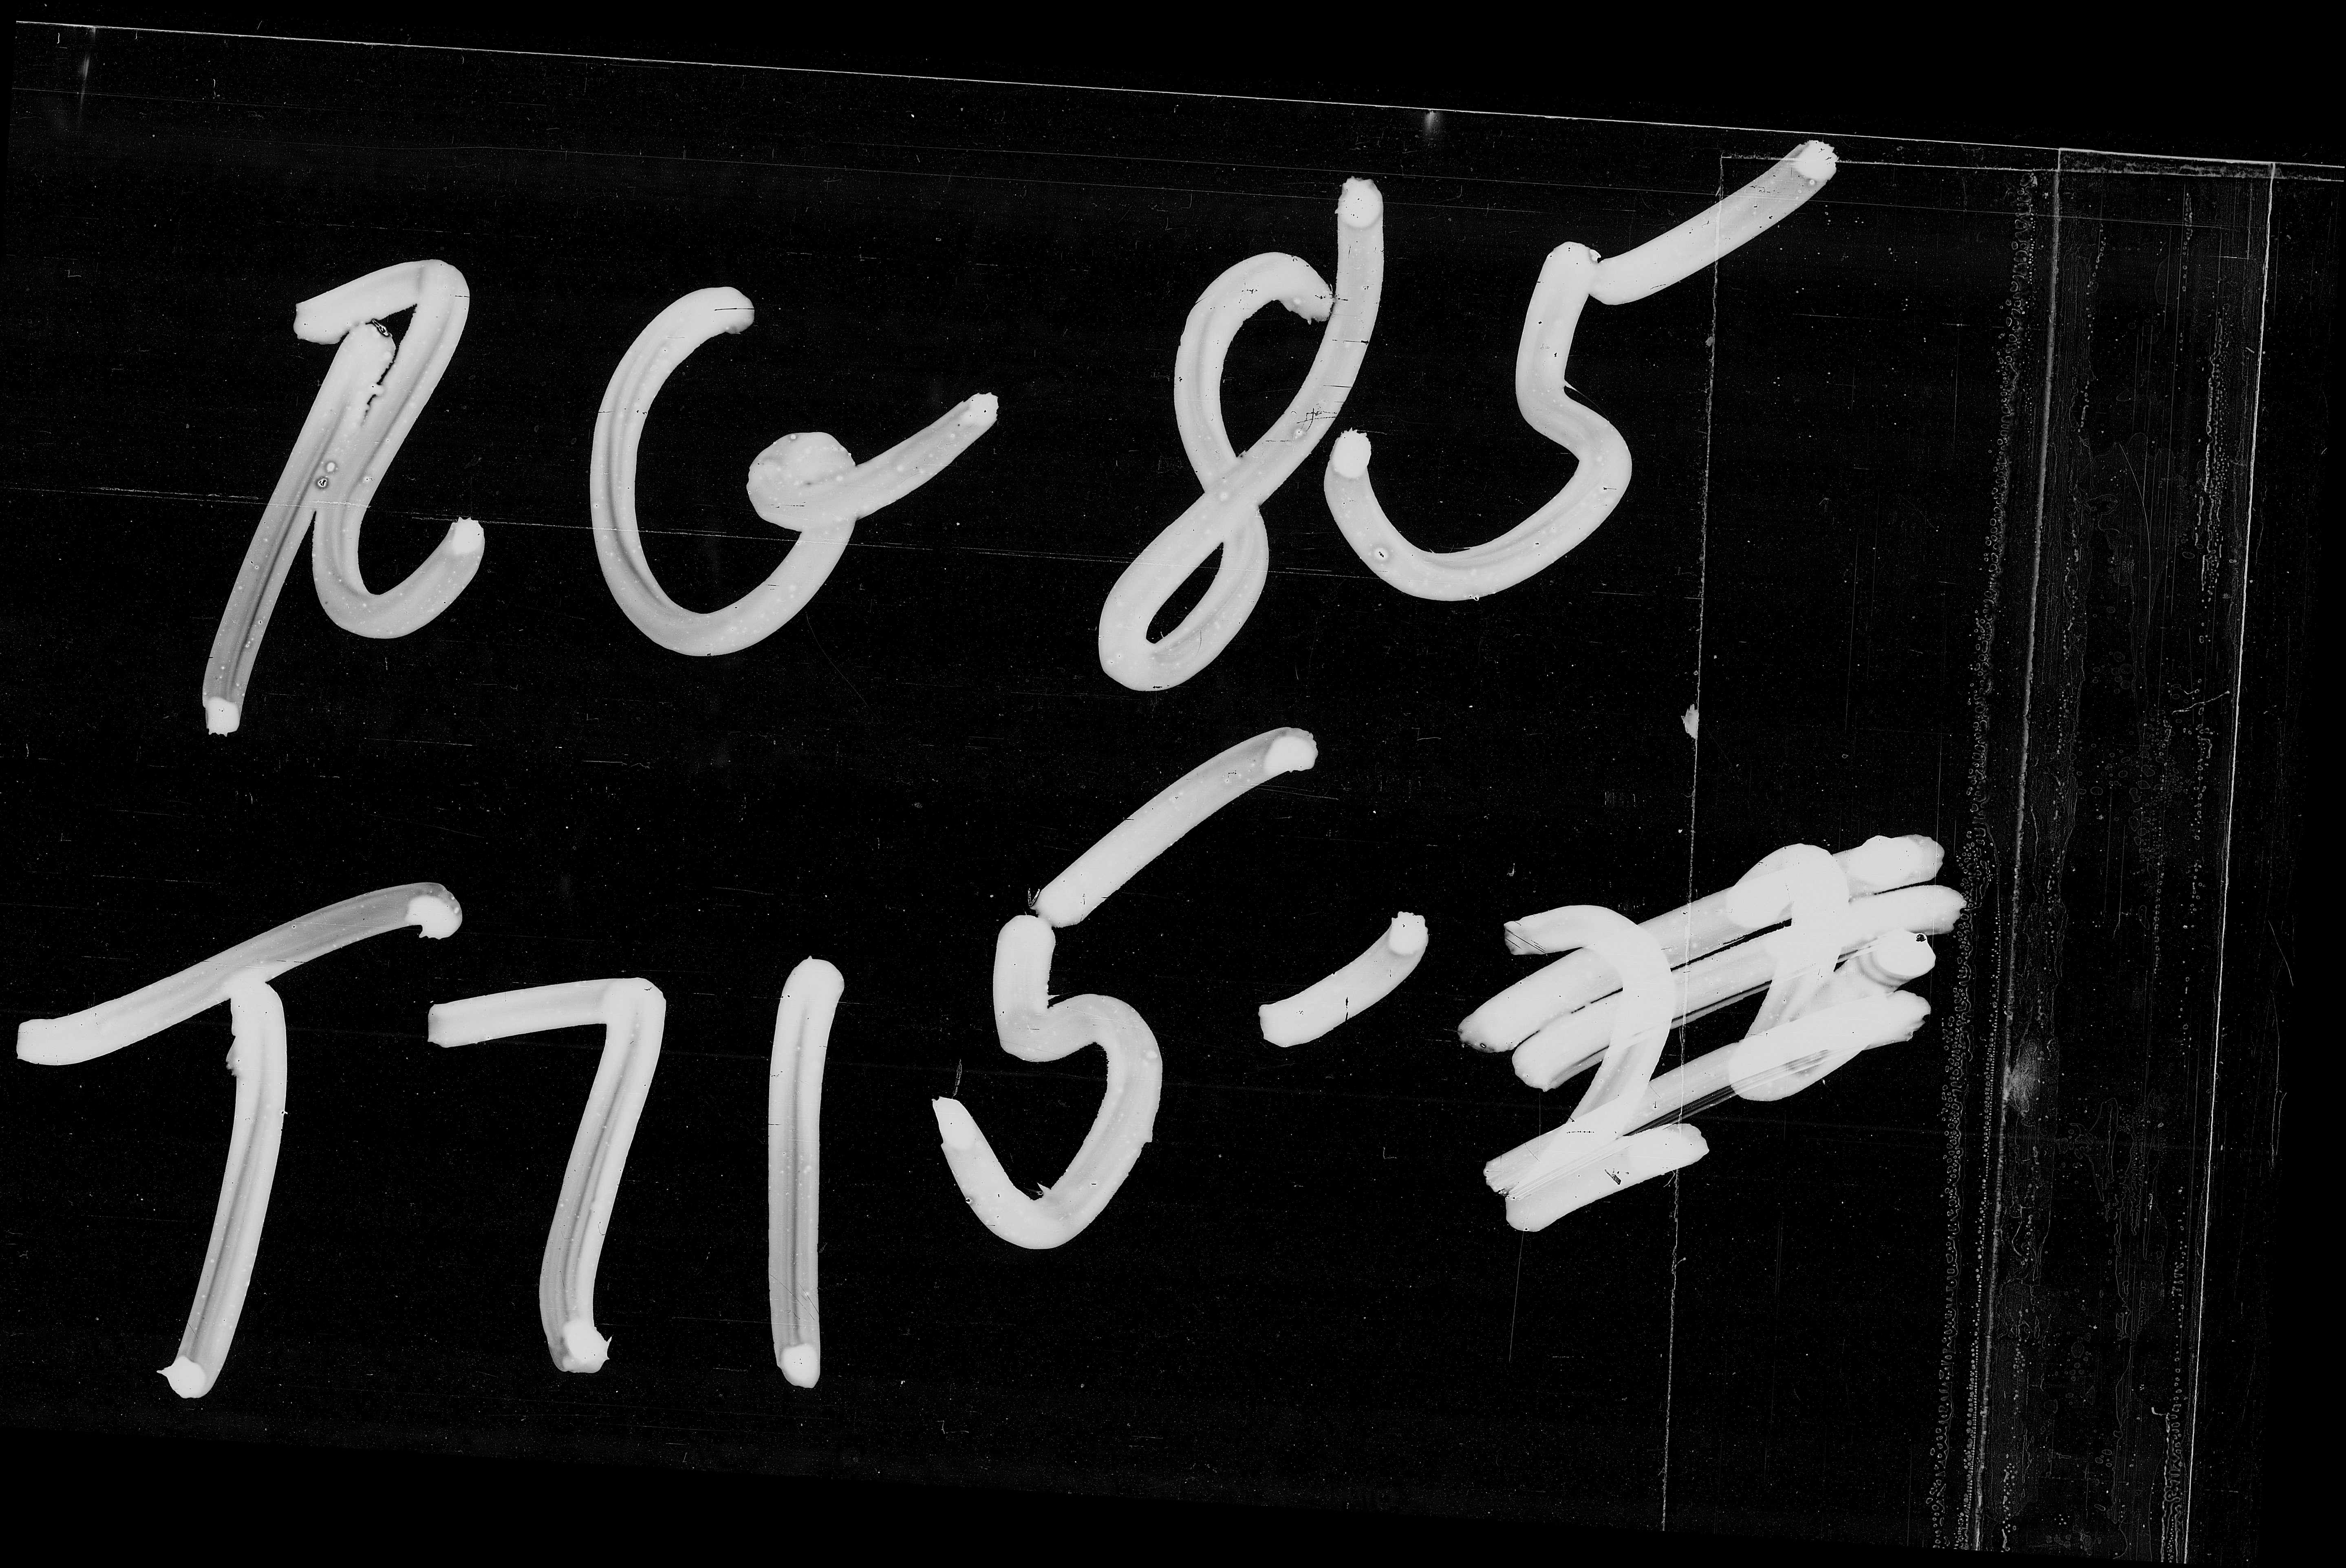 RG 85
T715-